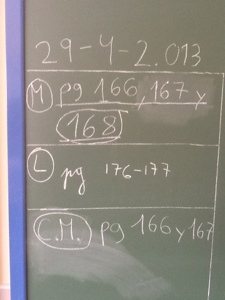 29-4-2.013
M pg 166, 167 y
168
L pg 176-177
C.M. pg 166 y 167